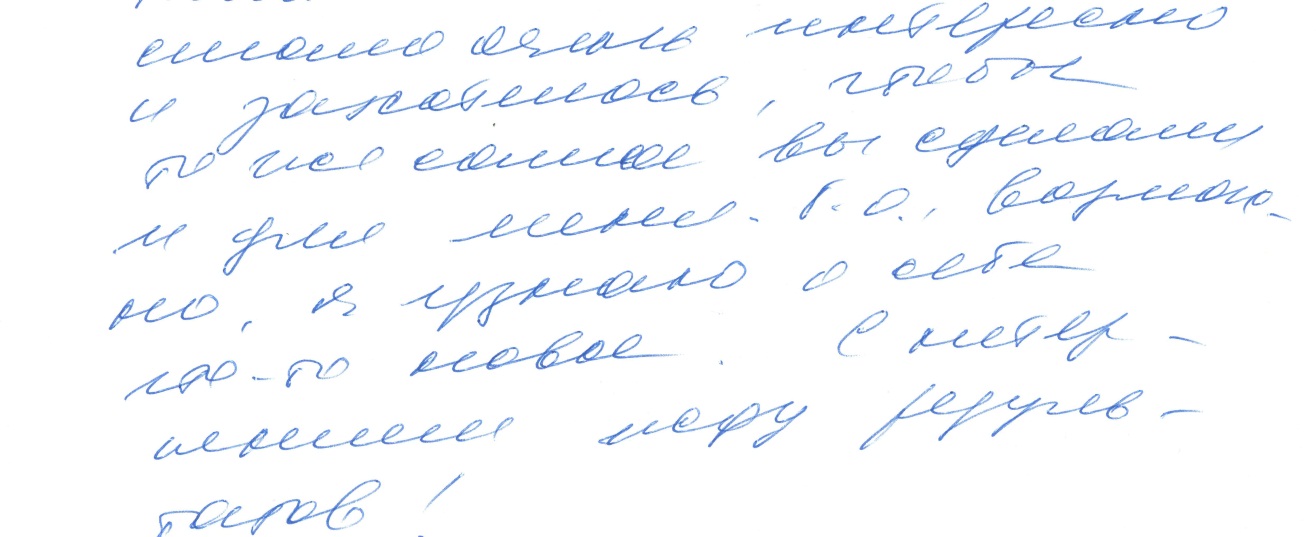 стало очень интересно
и захотелось, чтобы
то же самое вы сделали
и для меня. Т.о., возмож-
но, я узнаю о себе
что-то новое. С нетер-
пением жду резуль-
татов!